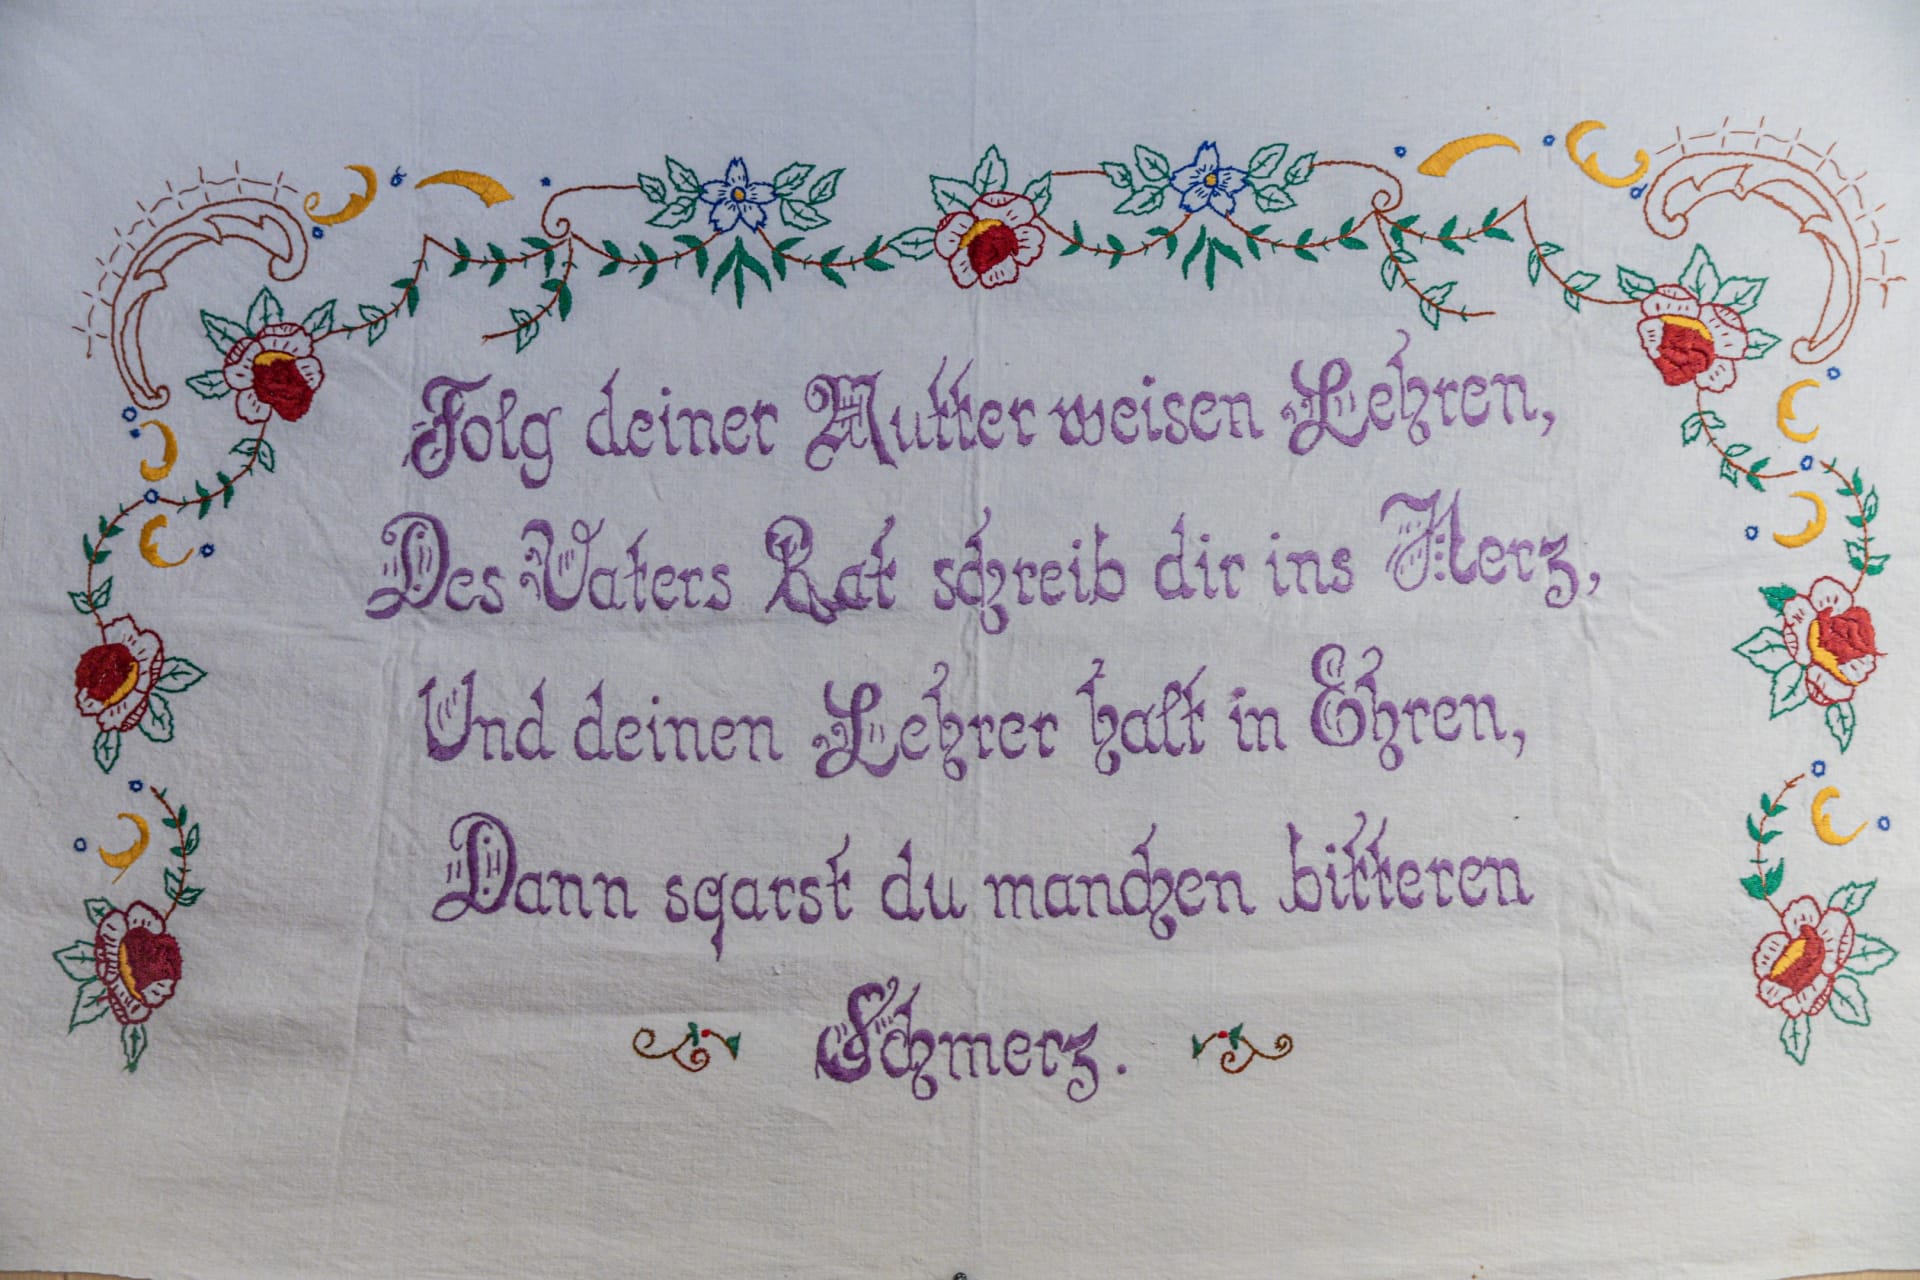 Folg deiner Mutter weisen Lehren,
Des Vaters Rat schreib dir ins Herz,
Und deinen Lehrer halt in Ehren,
Dann sqarst du manchen bitteren
Schmerz.